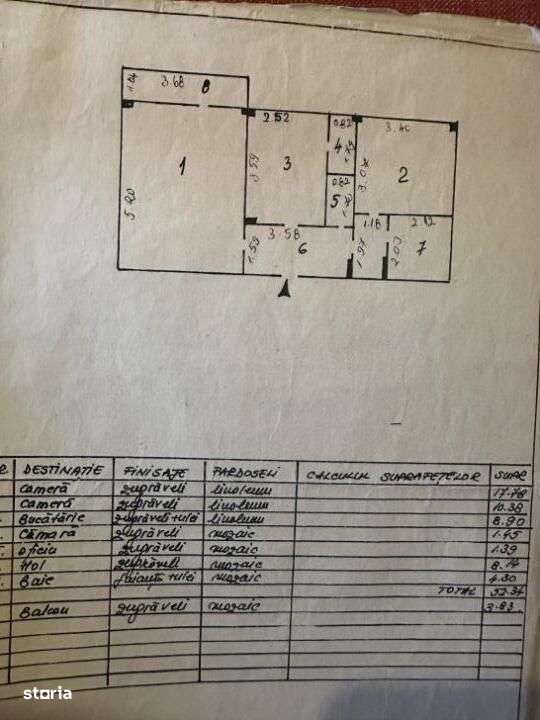 1.04 3.68 8
2.52 0.82 3.40
1 5.20 3.59 3 4 3.04 2
0.82
5 1.18 2.12
3.58
1.59 6 1.97 2.03 7
DESTINAȚIE FINISAJE PARDOSELI CALCULUL SUPRAFEȚELOR SUPR
Cameră zugrăveli linoleum 17.78
Cameră zugrăveli linoleum 10.38
Bucătărie zugrăveli+ulei linoleum 8.90
Cămară zugrăveli mozaic 1.45
Oficiu zugrăveli mozaic 1.39
Hol zugrăveli mozaic 8.14
Baie faianță+ulei mozaic 4.30
TOTAL 52.34
Balcon zugrăveli mozaic 3.83
storia